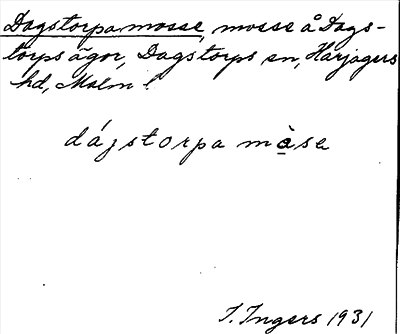 Dagstorpa mosse, mosse å Dags-
torps ägor, Dagstorps sn, Harjagers
hd, Malm l.
dájstorpa màse
I. Ingers 1931